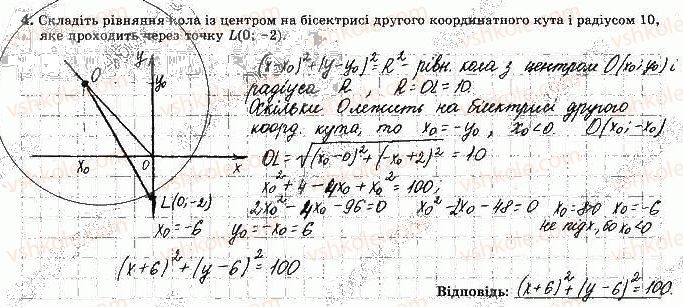 4. Складіть рівняння кола із центром на бісектрисі другого координатного кута і радіусом 10,
яке проходить через точку L(0; −2).
y
O
y₀
x₀
0
x
L(0;−2)
(x-x₀)² + (y-y₀)² = R² - рівн. кола з центром O(x₀;y₀) і
радіуса R, R=OL=10.
Оскільки O лежить на бісектрисі другого
коорд. кута, то x₀=-y₀, x₀<0 O(x₀;-x₀)
OL=√(x₀-0)²+(-x₀+2)² = 10
x₀²+4-4x₀+x₀²=100;
2x₀²-4x₀-96=0 x₀²-2x₀-48=0 x₀=8>0 x₀=-6
не підх, бо x₀<0
x₀=-6 y₀=-x₀=6
(x+6)²+(y-6)²=100
Відповідь: (x+6)²+(y-6)²=100.